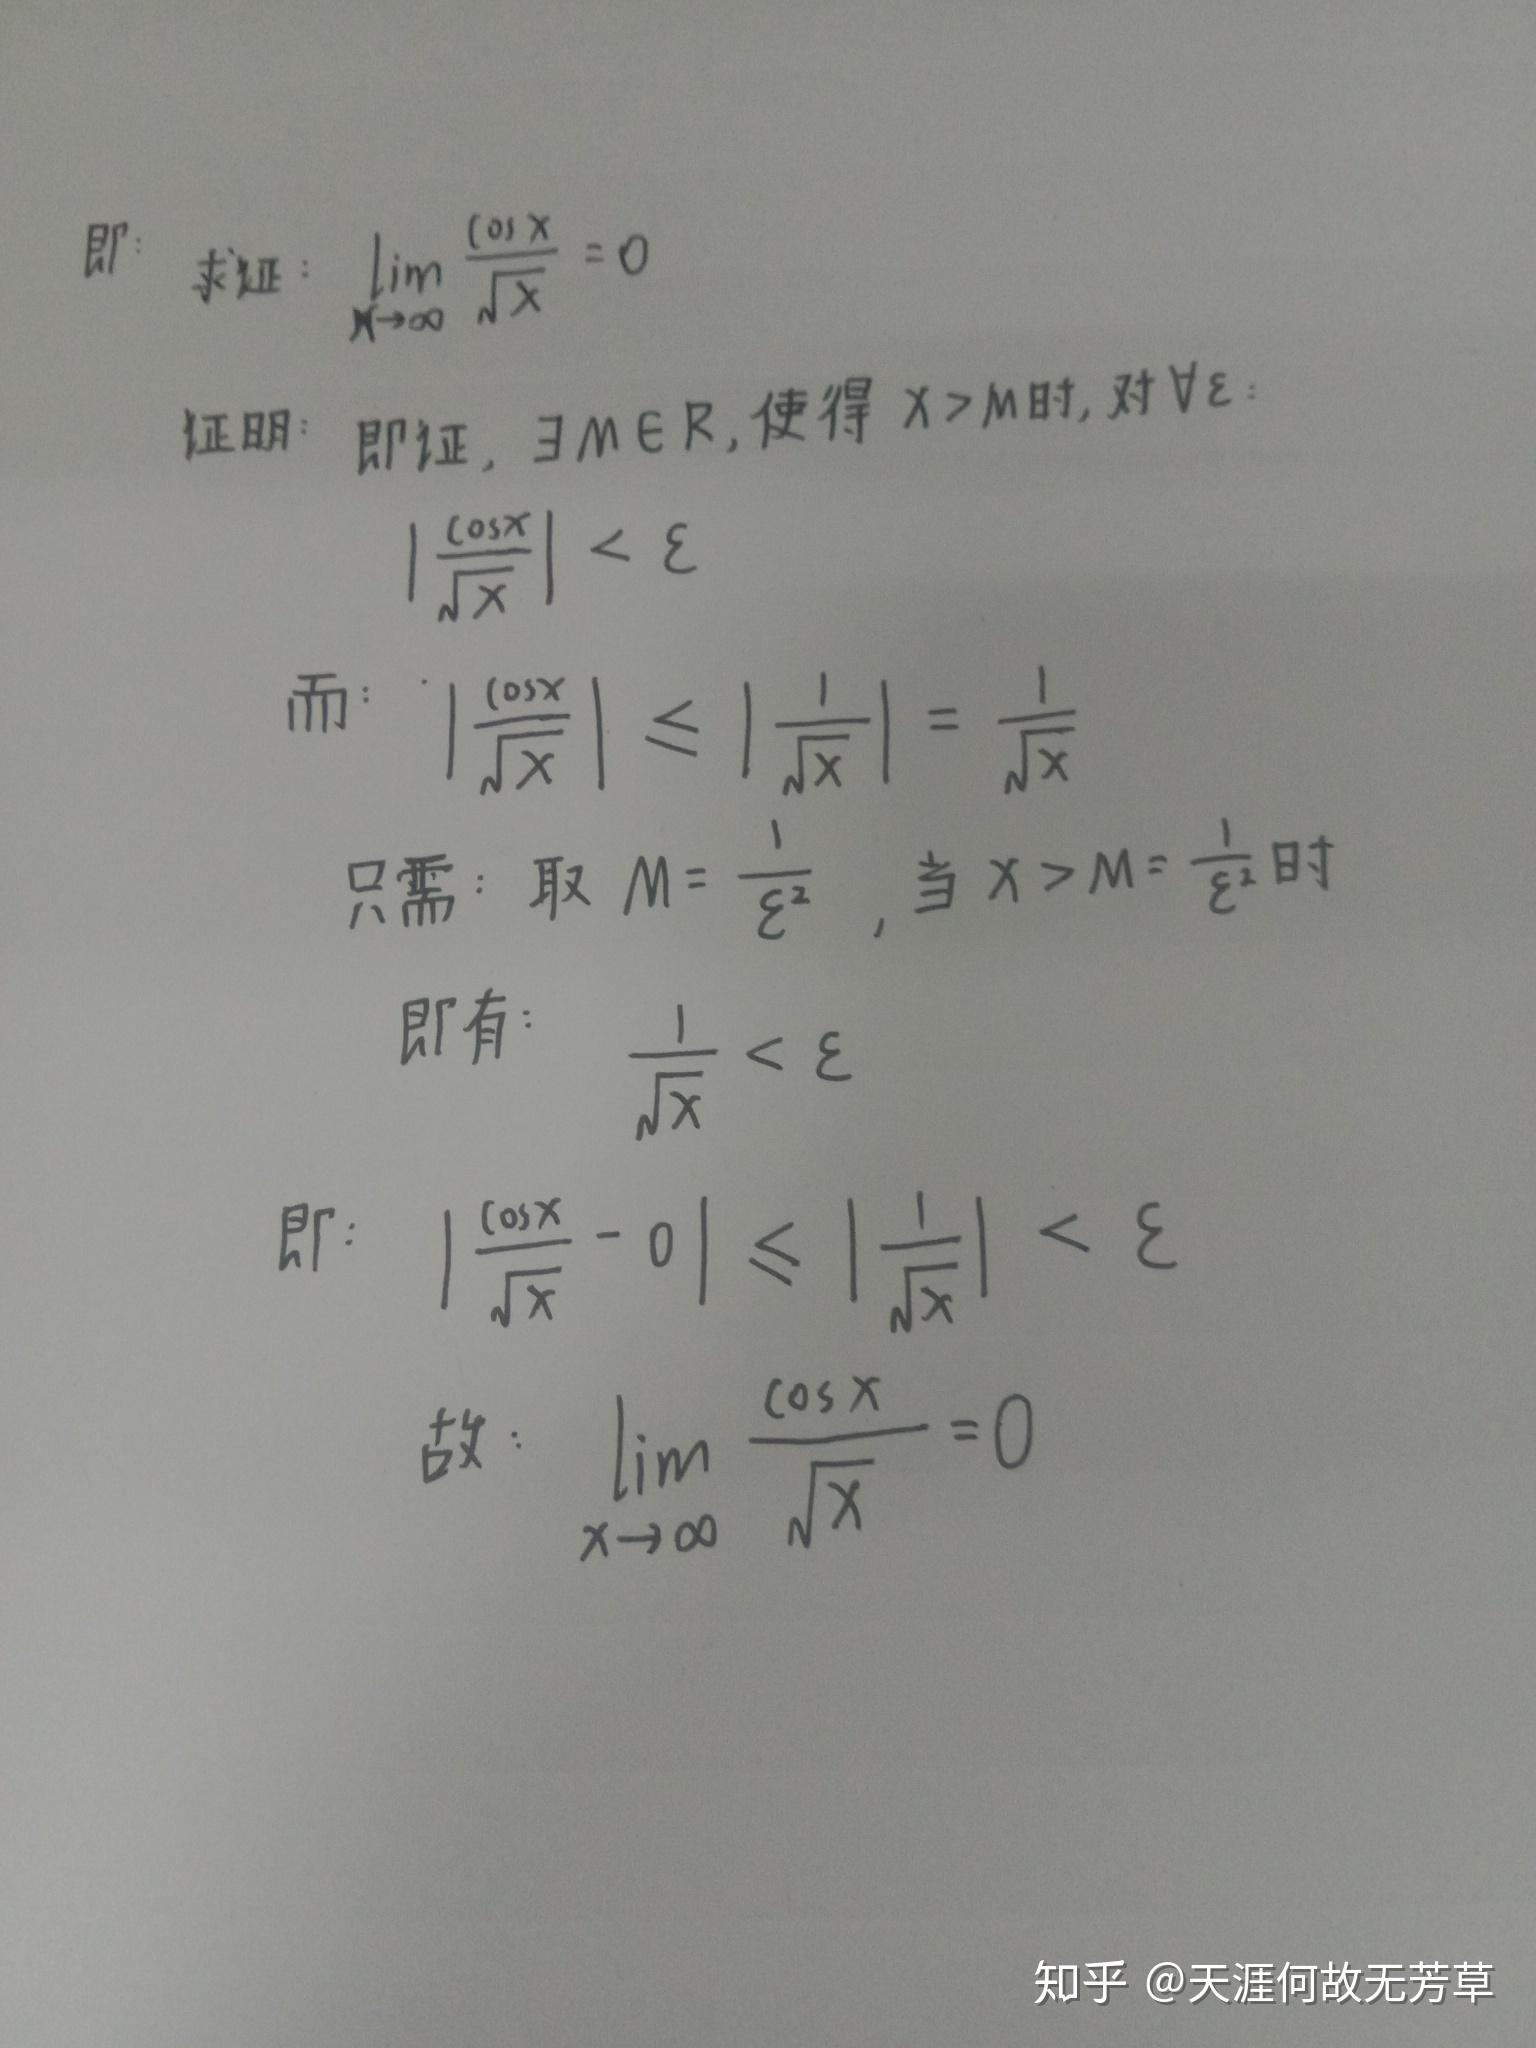 即: 求证: lim x→∞ cosx/√x = 0
证明: 即证, ∃M∈R, 使得 x>M时, 对∀ε:
|cosx/√x| < ε
而: |cosx/√x| ≤ |1/√x| = 1/√x
只需: 取 M = 1/ε² , 当 x>M = 1/ε² 时
即有: 1/√x < ε
即: |cosx/√x - 0| ≤ |1/√x| < ε
故: lim x→∞ cosx/√x = 0
知乎 @天涯何故无芳草